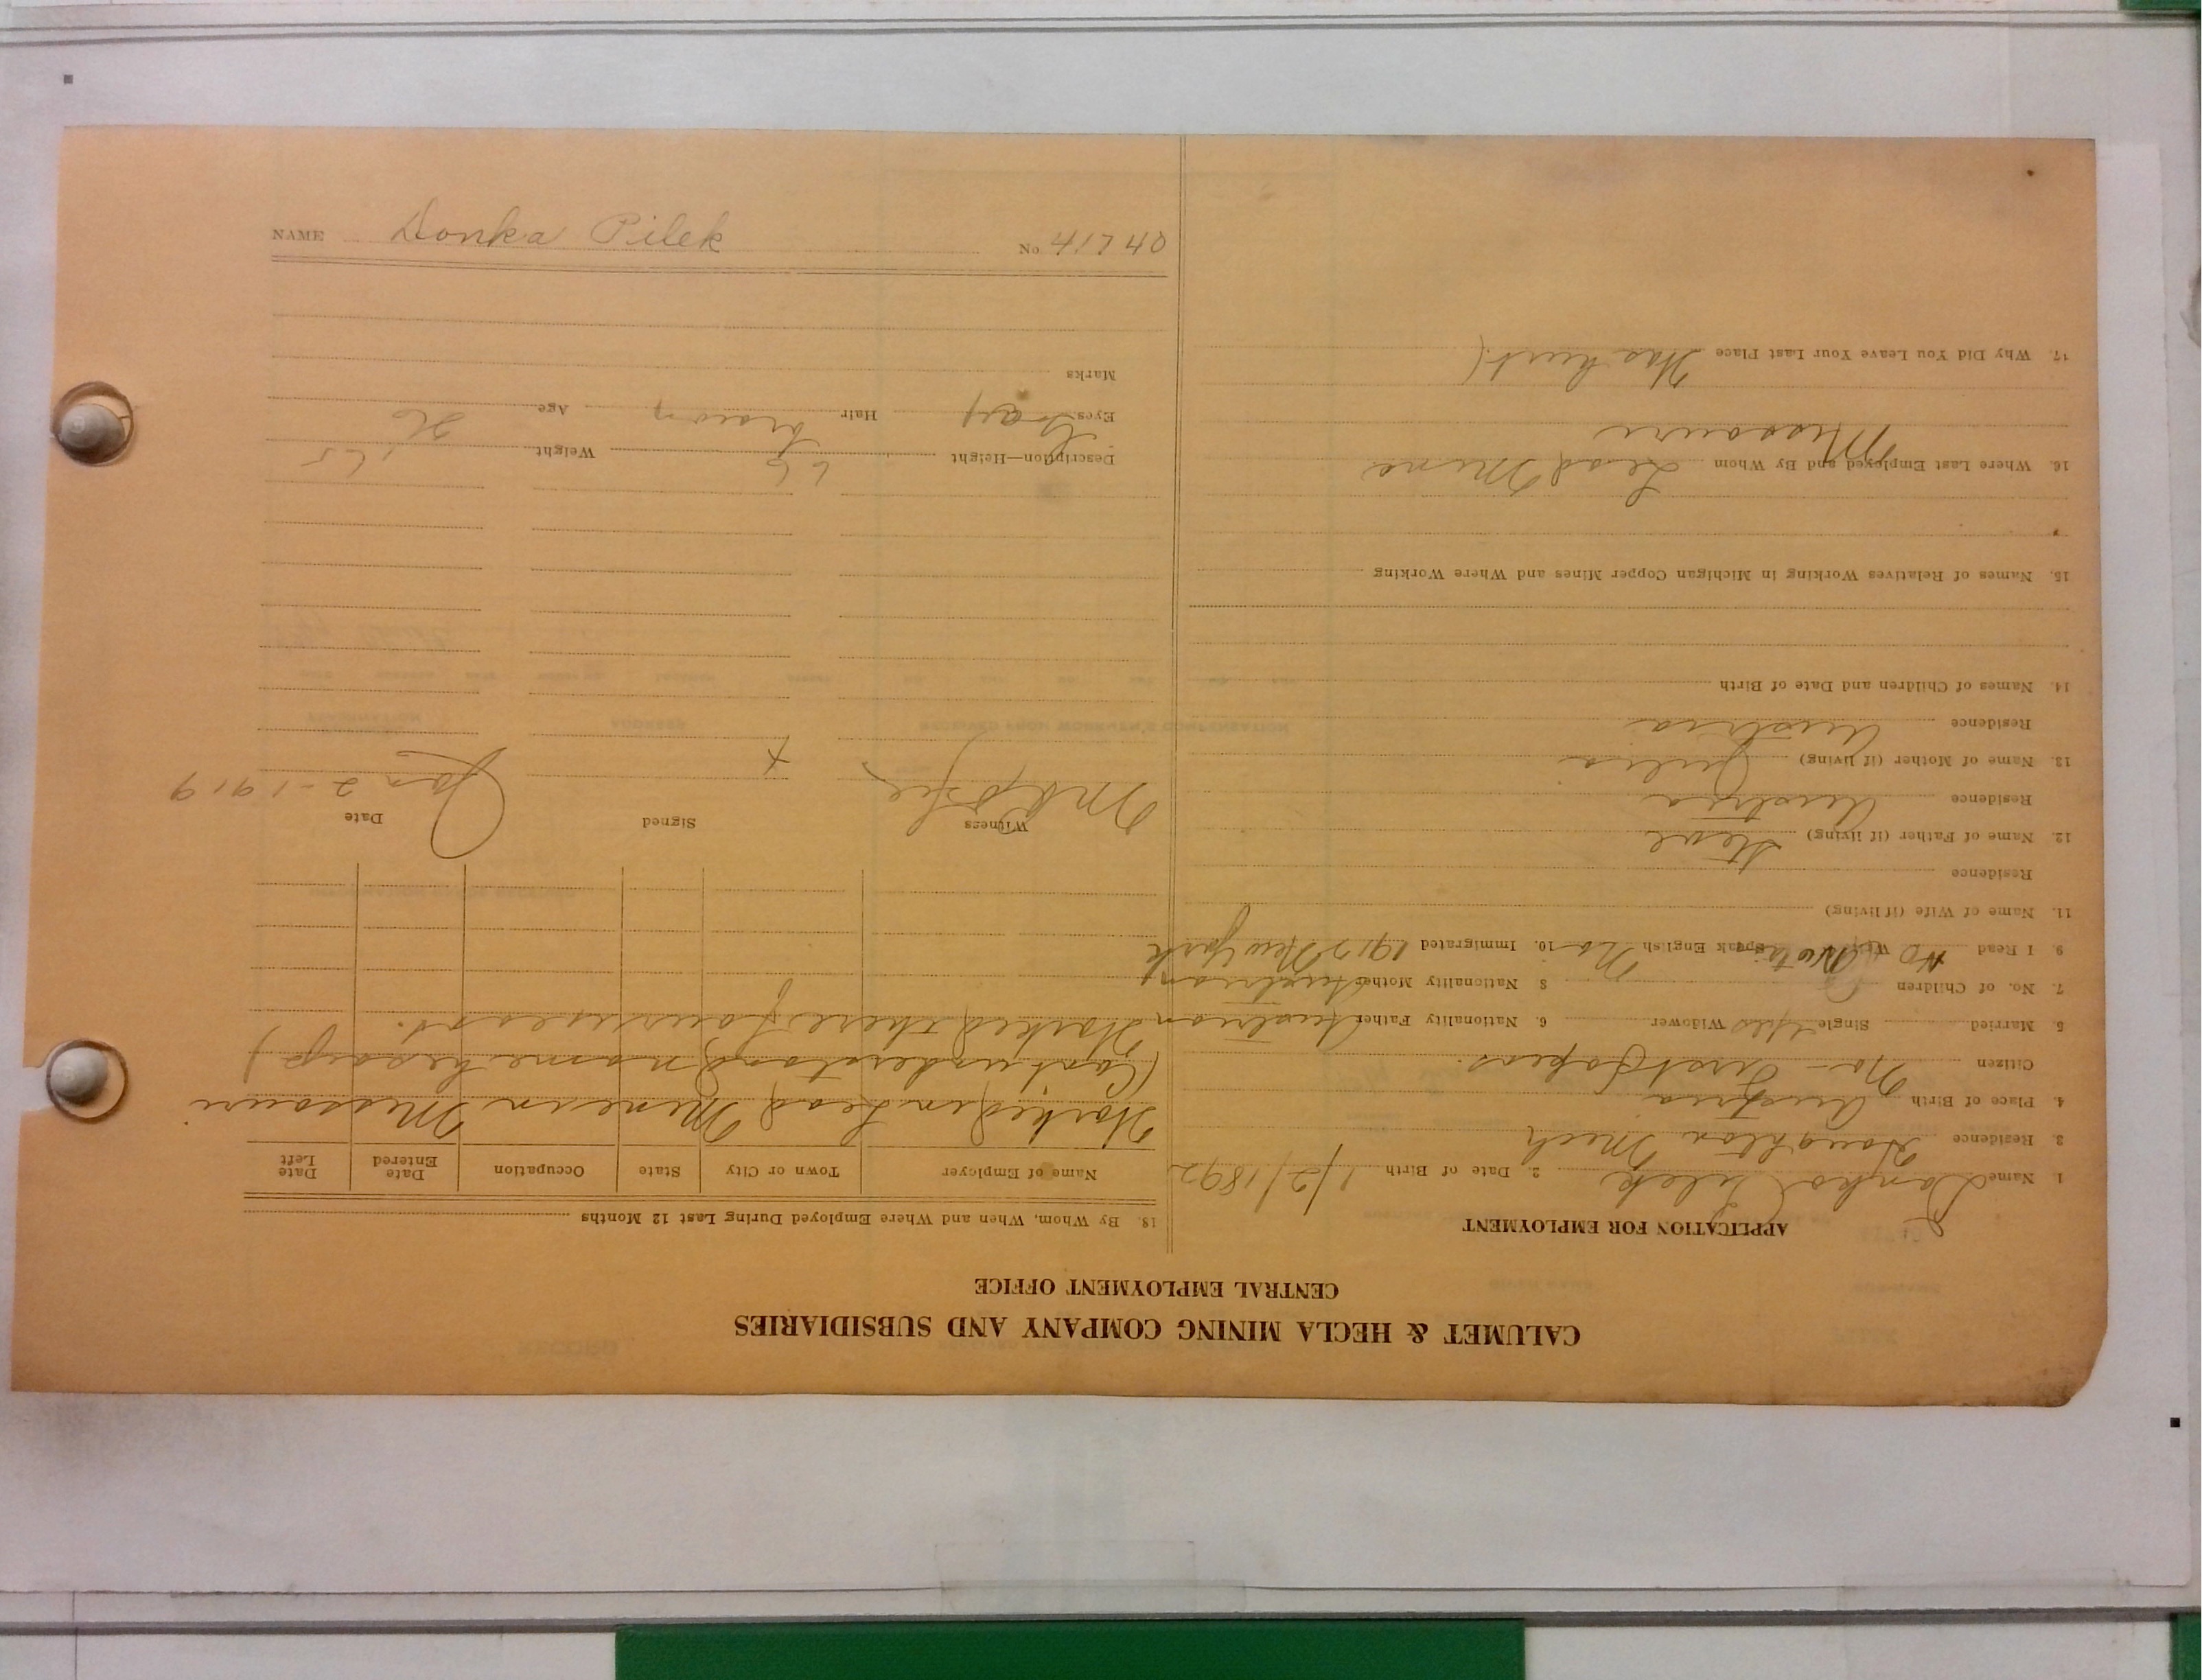 CALUMET & HECLA MINING COMPANY AND SUBSIDIARIES
CENTRAL EMPLOYMENT OFFICE
APPLICATION FOR EMPLOYMENT
1. Name Donko Pilek 2. Date of Birth 1/2/1892
3. Residence Houghton Mich
4. Place of Birth Austria
Citizen No - First papers.
5. Married Single Yes Widower 6. Nationality Father Austrian
7. No. of Children 8 Nationality Mother Austrian
9 I Read No Write No Speak English No 10. Immigrated 1912 New York
11. Name of Wife (if living)
Residence
12. Name of Father (if living) Steve
Residence Austria
13. Name of Mother (if living) Julia
Residence Austria
14. Names of Children and Date of Birth
15. Names of Relatives Working in Michigan Copper Mines and Where Working
16. Where Last Employed and By Whom Lead Mine
Missouri
17. Why Did You Leave Your Last Place Was hurt (
18. By Whom, When and Where Employed During Last 12 Months
Name of Employer Town or City State Occupation Date Entered Date Left
Worked in Lead Mine in Missouri
(Cant understand name he says)
Worked there four years.
Witness Signed Date
x Jan 2-1919
Description—Height 66 Weight 165
Eyes Gray Hair brown Age 26
Marks
NAME Donka Pilek No 41740